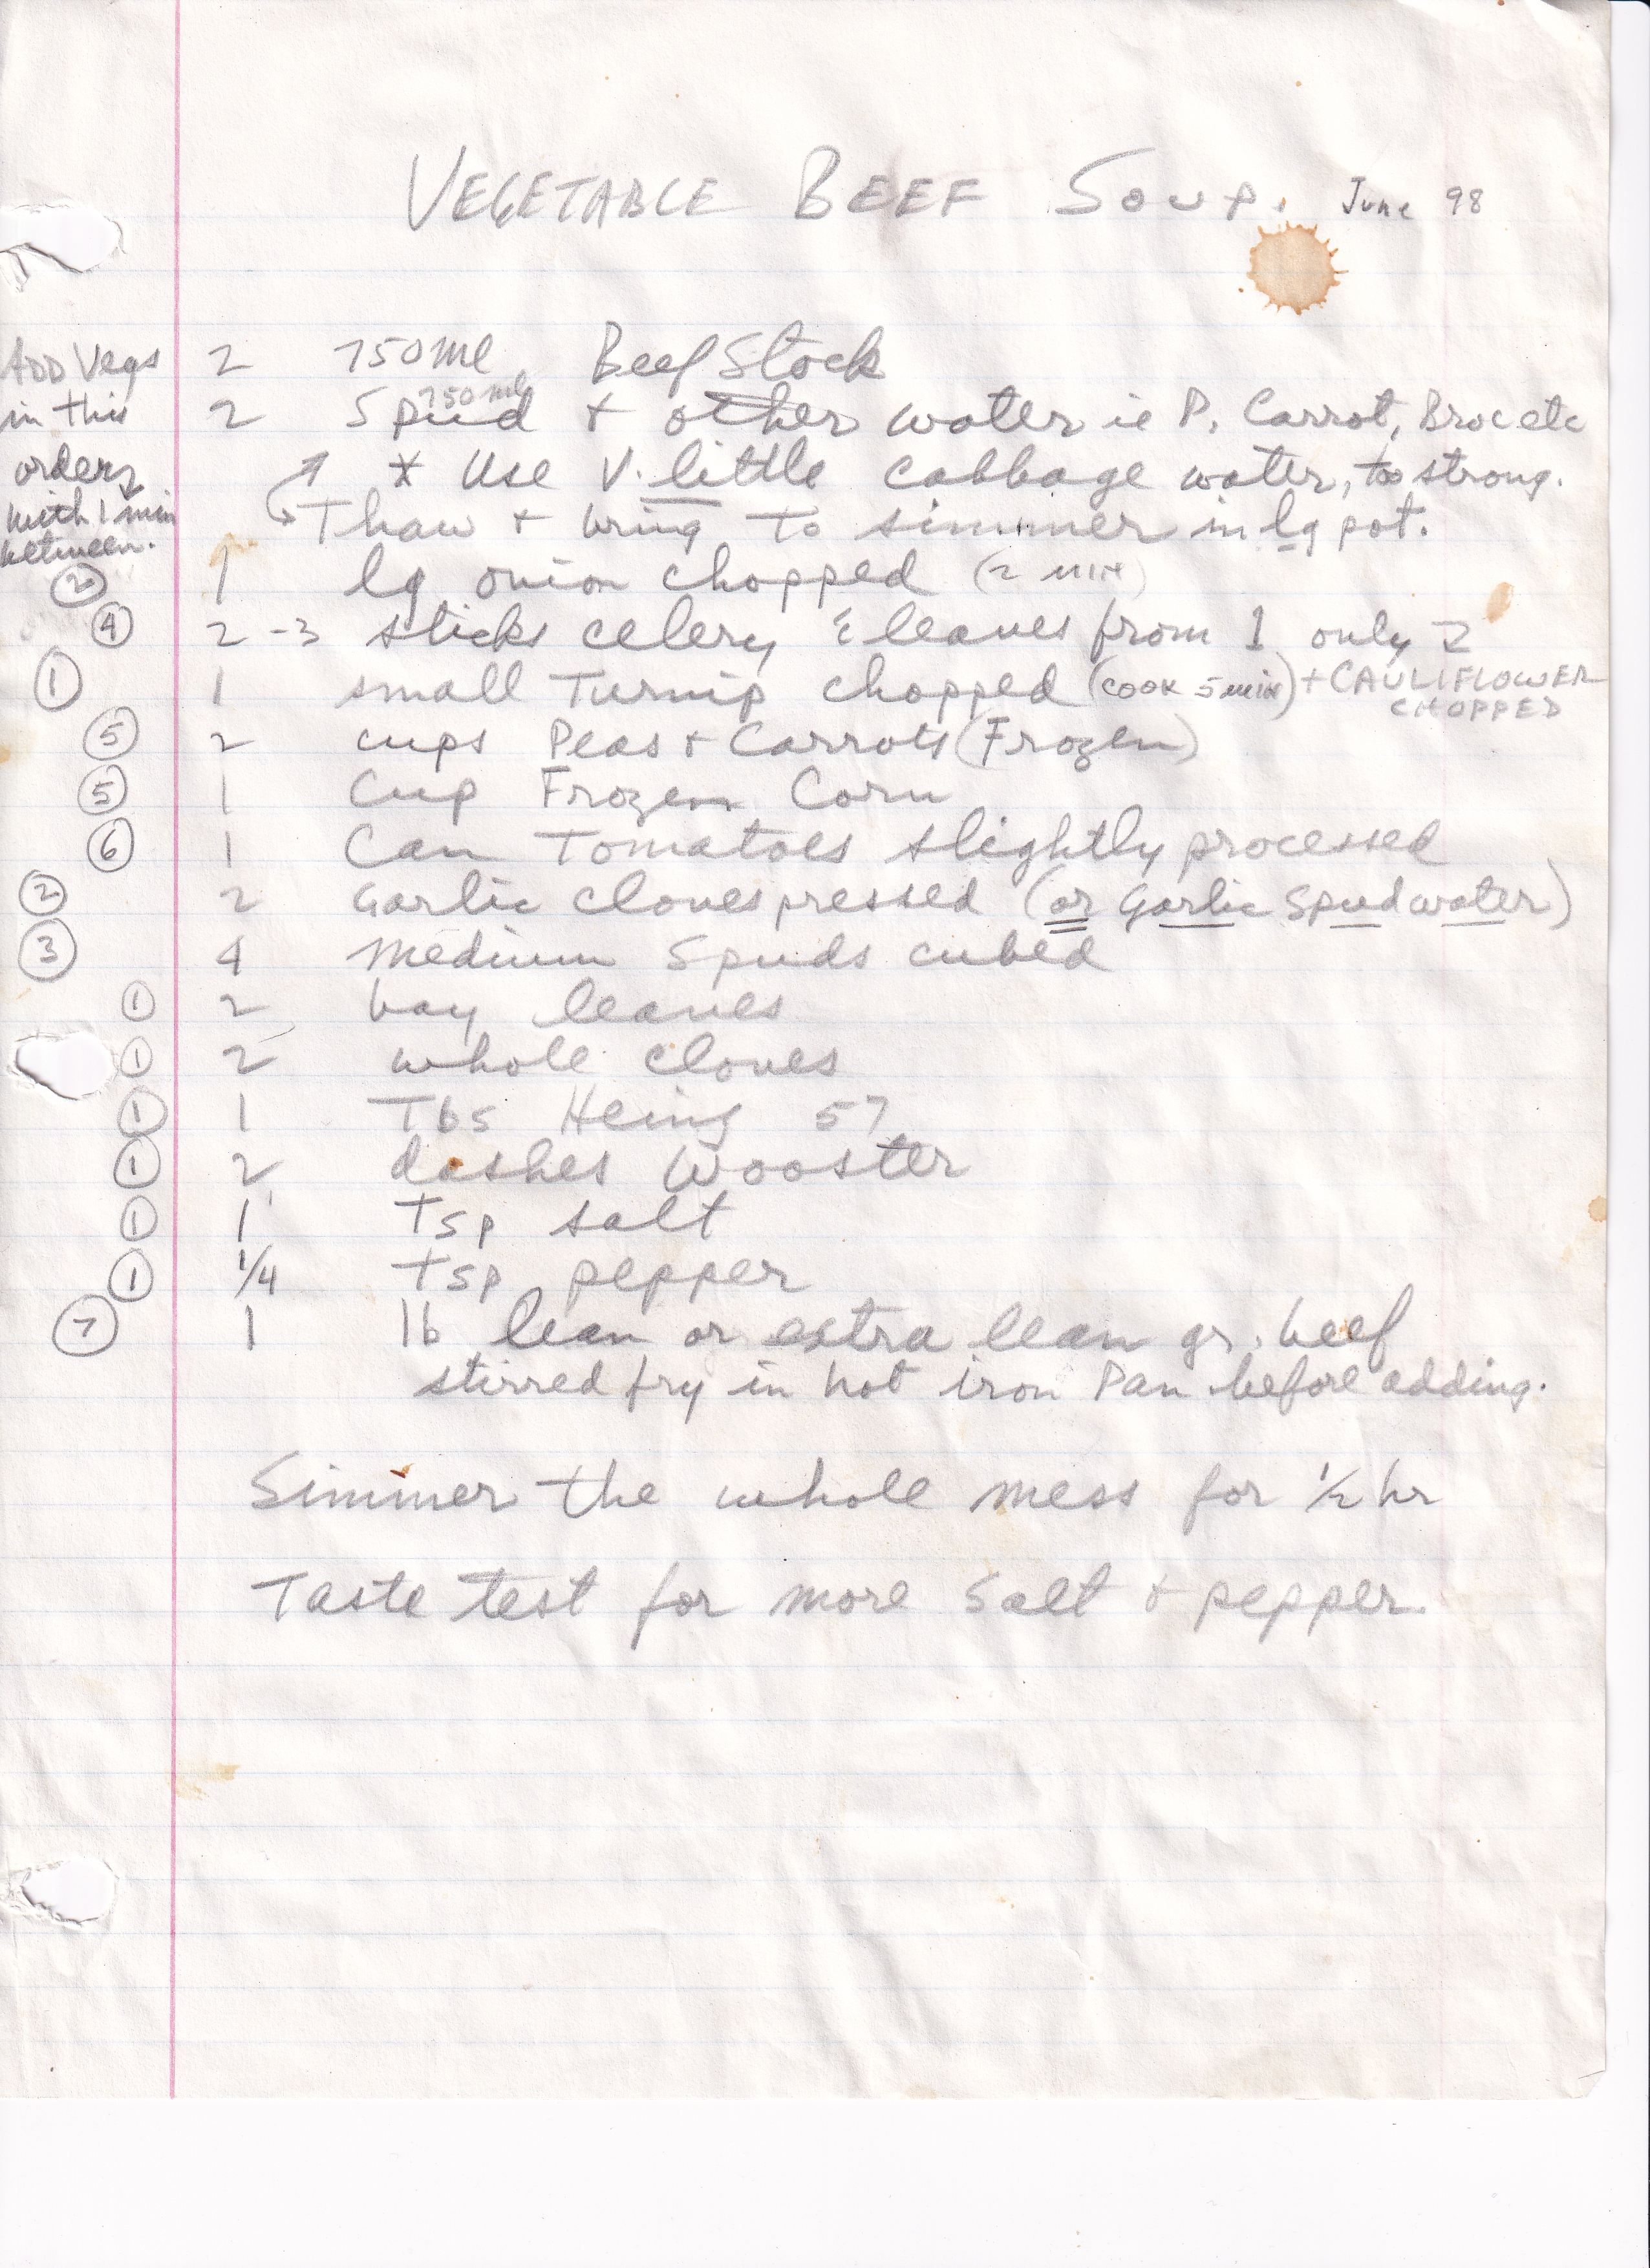 VEGETABLE BEEF SOUP. June 98
ADD Vegs
in this
order
with 1 min
between.
2 750 ml Beef Stock
2 750 ml Spud + other water ie P. Carrot, Broc etc
* Use V. little cabbage water, too strong.
Thaw + bring to simmer in lg pot.
② 1 lg onion chopped (2 MIN)
④ 2-3 sticks celery & leaves from 1 only
① 1 small Turnip chopped (COOK 5 MIN) + CAULIFLOWER
CHOPPED
⑤ 2 cups Peas + Carrots (Frozen)
⑤ 1 Cup Frozen Corn
⑥ 1 Can Tomatoes slightly processed
② 2 Garlic cloves pressed (or Garlic Spud water)
③ 4 Medium Spuds cubed
① 2 bay leaves
① 2 whole cloves
① 1 Tbs Heinz 57
① 2 dashes Wooster
① 1 Tsp salt
① 1/4 tsp pepper
⑦ 1 lb lean or extra lean gr. beef
stirred fry in hot iron Pan before adding.
Simmer the whole mess for 1/2 hr
Taste test for more salt + pepper.